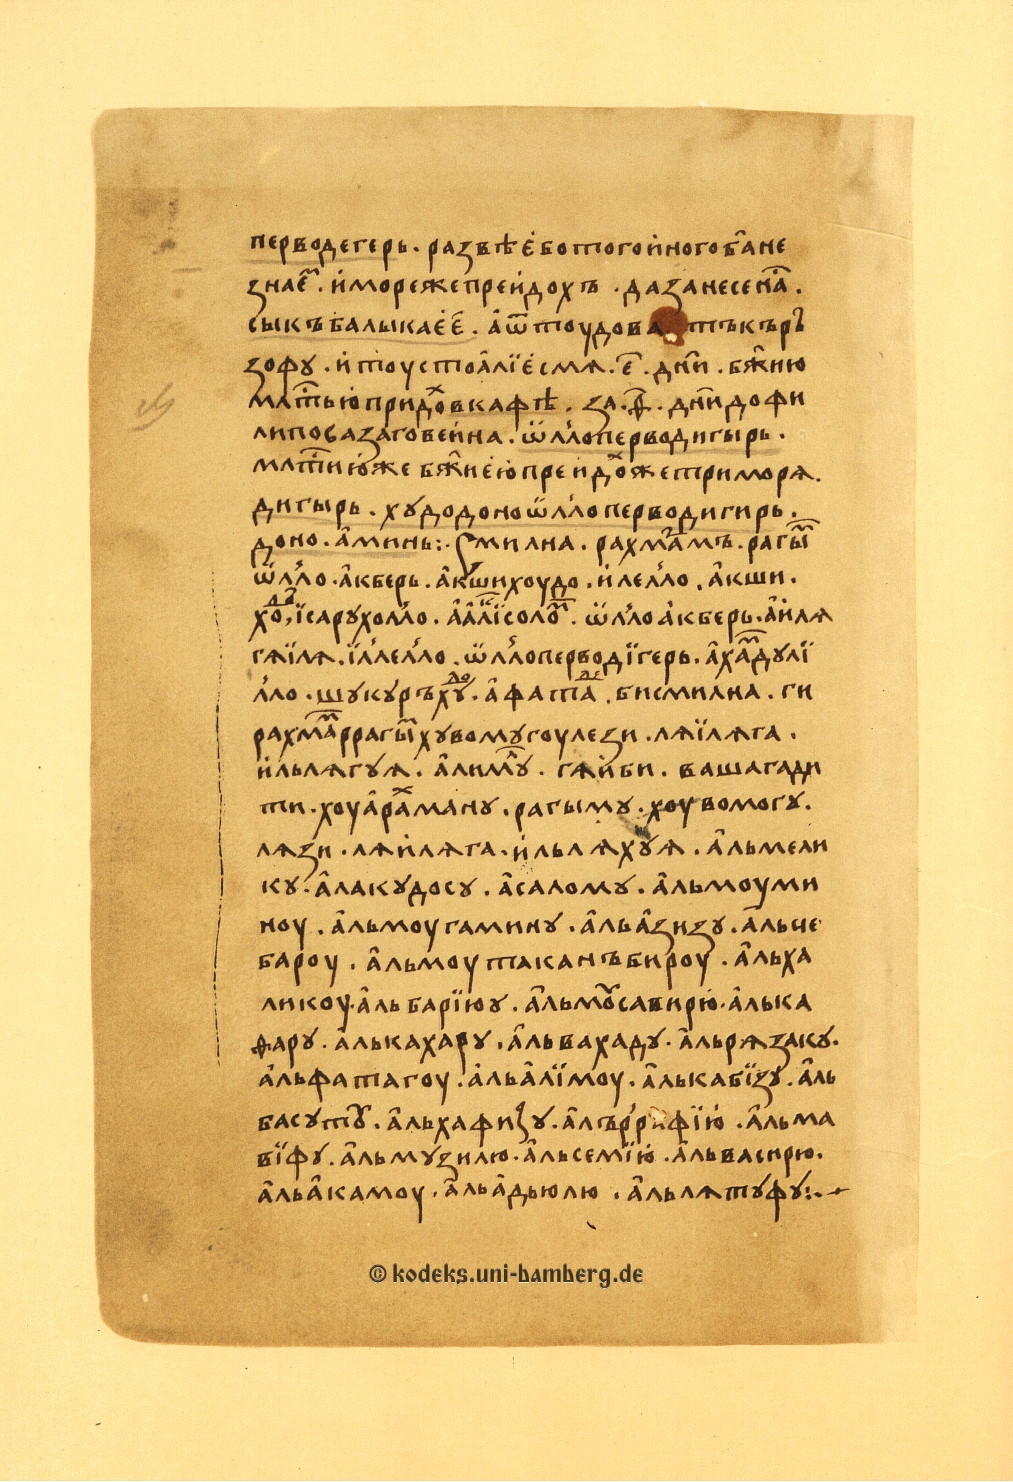 перводегерь. развѣе́ботогои́ногобг҃ане
знае҇. и́мореже прейдохъ. дазанесена҇.
сыкъбалыкаее҇. а҆ѿтоудова тъкъръ
зофу. и́тоустоалїесмя. е҃. дн҃и. бж҃ию
млⷭ҇тьюпридоⷯвкафѣ. за.ѳ҃. дн҃идофи
липовазаговеи́на. ѿлл҆оперводигырь.
млⷭ҇тиюже бж҃иею прейдоⷯжетриморя.
дигырь. худодоноѿлл҆оперводигирь.
доно. аминь:· Смилна. рахмамъ. рагыⷨ
ѿлл҆о. акберь. акшихоудо. илелло. акши.
хоⷣ,їсарухолло. аалїсолоⷨ. ѿлл҆оакберь. аиля
гяїля. їллелло. ѿлл҆оперводїгерь. ахаⷨдулї
лло. шукуръхуⷣ. афатаⷣ. бисмилна. ги
рахмаⷨррагыⷨхувомугоулези. ляїляга.
ильлягуя. алимⷧу. гяиби. вашагади
ти. хоуараⷯману. рагыму. хоувомогу.
лязи. ляиляга. ильляхуя. альмели
ку. алакудосу. асалому. альмоуми
ноу. альмоугамину. альазизу. альче
бароу. альмоутаканъбироу. альха
ликоу. альбарїюу. альмⷹсавирю. алька
ѳару. алькахару. альвахаду. альрязаку.
альфатагоу. альалїмоу. алькабїзу. аль
басутⷹ. альхафизу. алъррафїю. альма
вїфу. альмузилю. альсемїю. альвасирю.
альакамоу. альадьюлю. альлятуфу:·
© kodeks.uni-bamberg.de